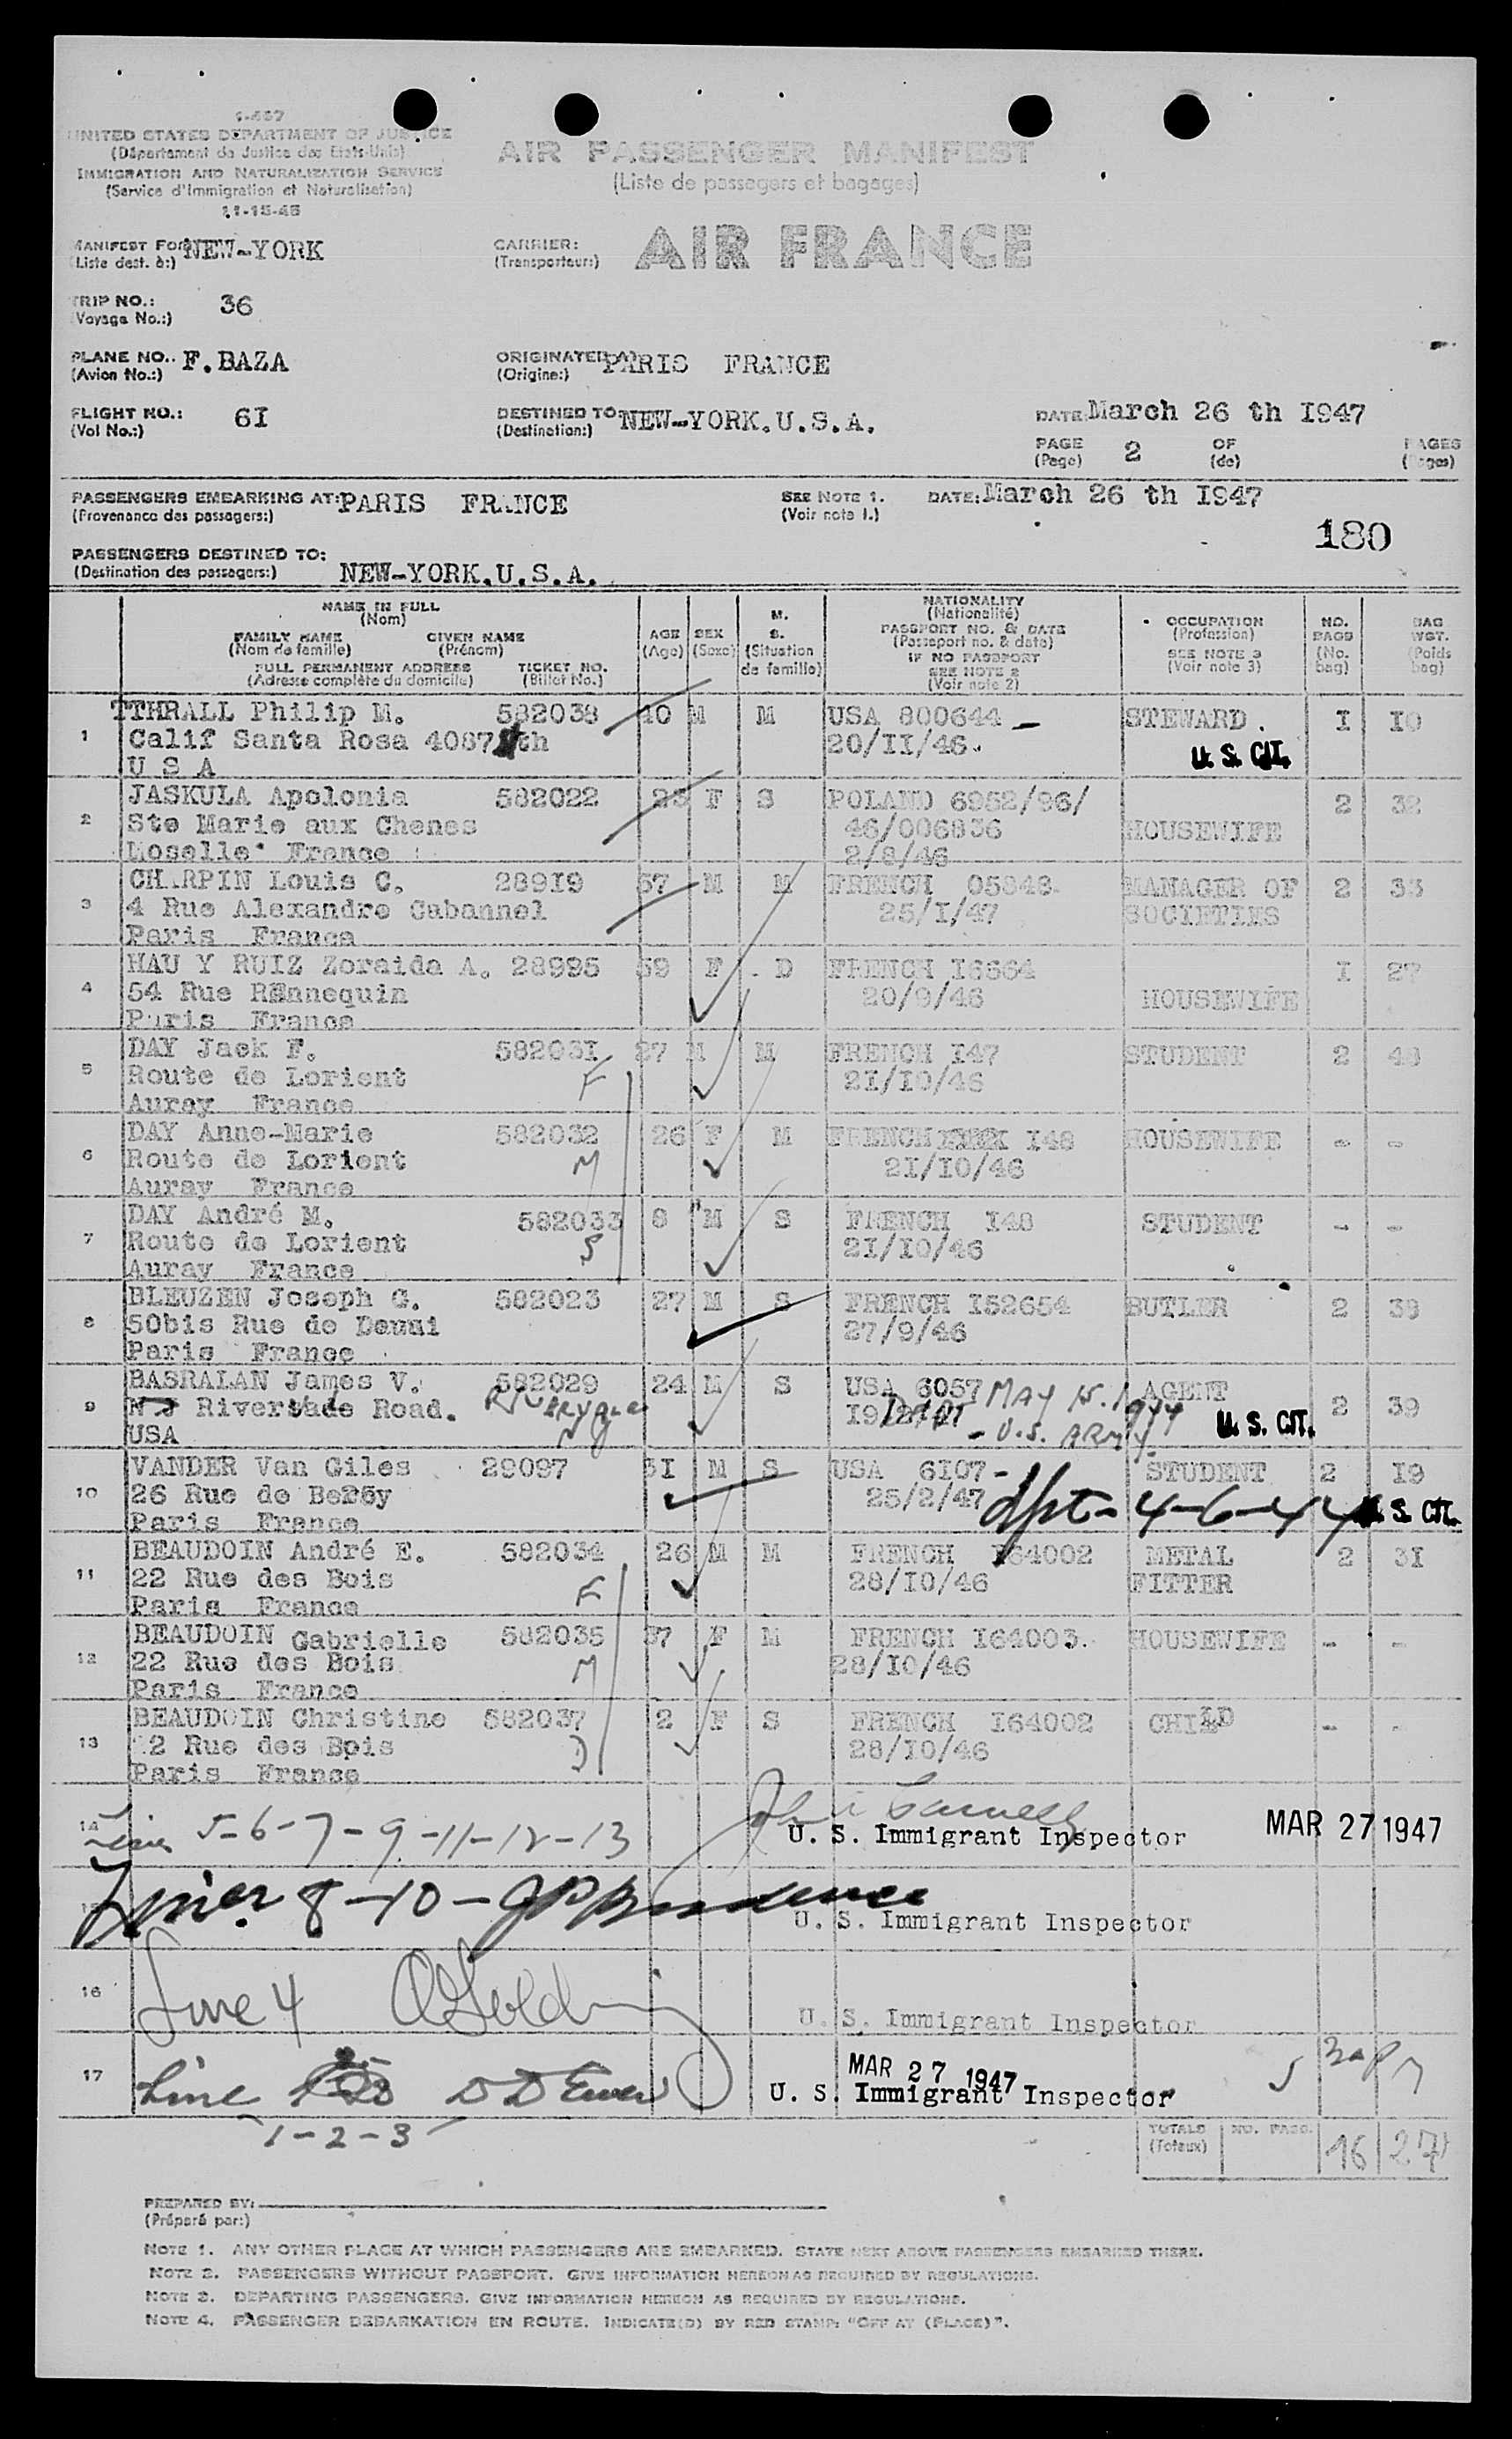 I-467
UNITED STATES DEPARTMENT OF JUSTICE
(Département de Justice des Etats-Unis)
IMMIGRATION AND NATURALIZATION SERVICE
(Service d'Immigration et Naturalisation)
11-15-45
AIR PASSENGER MANIFEST
(Liste de passagers et bagages)
MANIFEST FOR: NEW-YORK
(Liste dest. à:)
CARRIER: AIR FRANCE
(Transporteur:)
TRIP NO.: 36
(Voyage No.:)
PLANE NO.. F.BAZA
(Avion No.:)
ORIGINATED AT PARIS FRANCE
(Origine:)
FLIGHT NO.: 6I
(Vol No.:)
DESTINED TO: NEW-YORK.U.S.A.
(Destination:)
DATE: March 26 th I947
PAGE 2 OF PAGES
(Page) (de) (Pages)
PASSENGERS EMBARKING AT: PARIS FRANCE
(Provenance des passagers:)
SEE NOTE 1.
(Voir note 1.)
DATE: March 26 th I947
180
PASSENGERS DESTINED TO:
(Destination des passagers:) NEW-YORK.U.S.A.
NAME IN FULL
(Nom)
FAMILY NAME GIVEN NAME
(Nom de famille) (Prénom)
FULL PERMANENT ADDRESS TICKET NO.
(Adresse complète du domicile) (Billet No.)
AGE
(Age)
SEX
(Sexe)
M.
S.
(Situation
de famille)
NATIONALITY
(Nationalité)
PASSPORT NO. & DATE
(Passeport no. & date)
IF NO PASSPORT
SEE NOTE 2
(Voir note 2)
OCCUPATION
(Profession)
SEE NOTE 3
(Voir note 3)
NO.
BAGS
(No.
bag)
BAG
WGT.
(Poids
bag)
1 TTHRALL Philip M. 582038 40 M M USA 800644 - STEWARD. I I0
Calif Santa Rosa 4087 th 20/II/46. U. S. CIT.
U S A
2 JASKULA Apolonia 582022 25 F S POLAND 6952/96/ 2 32
Ste Marie aux Chenes 46/006836 HOUSEWIFE
Moselle France 2/8/46
3 CHARPIN Louis C. 28919 57 M M FRENCH 05848 MANAGER OF 2 33
4 Rue Alexandre Cabannel 25/I/47 SOCIETIES
Paris France
4 HAU Y RUIZ Zoraida A. 28995 59 F D FRENCH I6664 I 27
54 Rue Rennequin 20/9/46 HOUSEWIFE
Paris France
5 DAY Jack F. 58203I 27 M M FRENCH I47 STUDENT 2 48
Route de Lorient F 2I/I0/46
Auray France
6 DAY Anne-Marie 582032 26 F M FRENCH I48 HOUSEWIFE - -
Route de Lorient M 2I/I0/46
Auray France
7 DAY André M. 582033 8 M S FRENCH I48 STUDENT - -
Route de Lorient S 2I/I0/46
Auray France
8 BLEUZEN Joseph G. 582023 27 M S FRENCH I52654 BUTLER 2 39
50bis Rue de Douai 27/9/46
Paris France
9 BASRALAN James V. 582029 24 M S USA 6057 MAY 15. 1944 AGENT 2 39
N J Rivervale Road. RIVERVALE NJ Dept - U.S. ARMY. U. S. CIT.
USA
10 VANDER Van Giles 29097 3I M S USA 6I07- STUDENT 2 I9
26 Rue de Berry 25/2/47 dpt- 4-6-44 U. S. CIT.
Paris France
11 BEAUDOIN André E. 582034 26 M M FRENCH I64002 METAL 2 3I
22 Rue des Bois F 28/I0/46 FITTER
Paris France
12 BEAUDOIN Gabrielle 582035 37 F M FRENCH I64003. HOUSEWIFE - -
22 Rue des Bois M 28/I0/46
Paris France
13 BEAUDOIN Christine 582037 2 F S FRENCH I64002 CHILD - -
22 Rue des Bois D 28/I0/46
Paris France
14 Lines 5-6-7-9-11-12-13 U. S. Immigrant Inspector MAR 27 1947
Lines 8-10- U. S. Immigrant Inspector
16 Line 4 U. S. Immigrant Inspector
MAR 27 1947
17 Line U. S. Immigrant Inspector
1-2-3
TOTALS NO. PASS. 16
(Totaux)
PREPARED BY:
(Préparé par:)
NOTE 1. ANY OTHER PLACE AT WHICH PASSENGERS ARE EMBARKED. STATE NEXT ABOVE PASSENGERS EMBARKED THERE.
NOTE 2. PASSENGERS WITHOUT PASSPORT. GIVE INFORMATION HEREON AS REQUIRED BY REGULATIONS.
NOTE 3. DEPARTING PASSENGERS. GIVE INFORMATION HEREON AS REQUIRED BY REGULATIONS.
NOTE 4. PASSENGER DEBARKATION EN ROUTE. INDICATE(D) BY RED STAMP: "OFF AT (PLACE)".